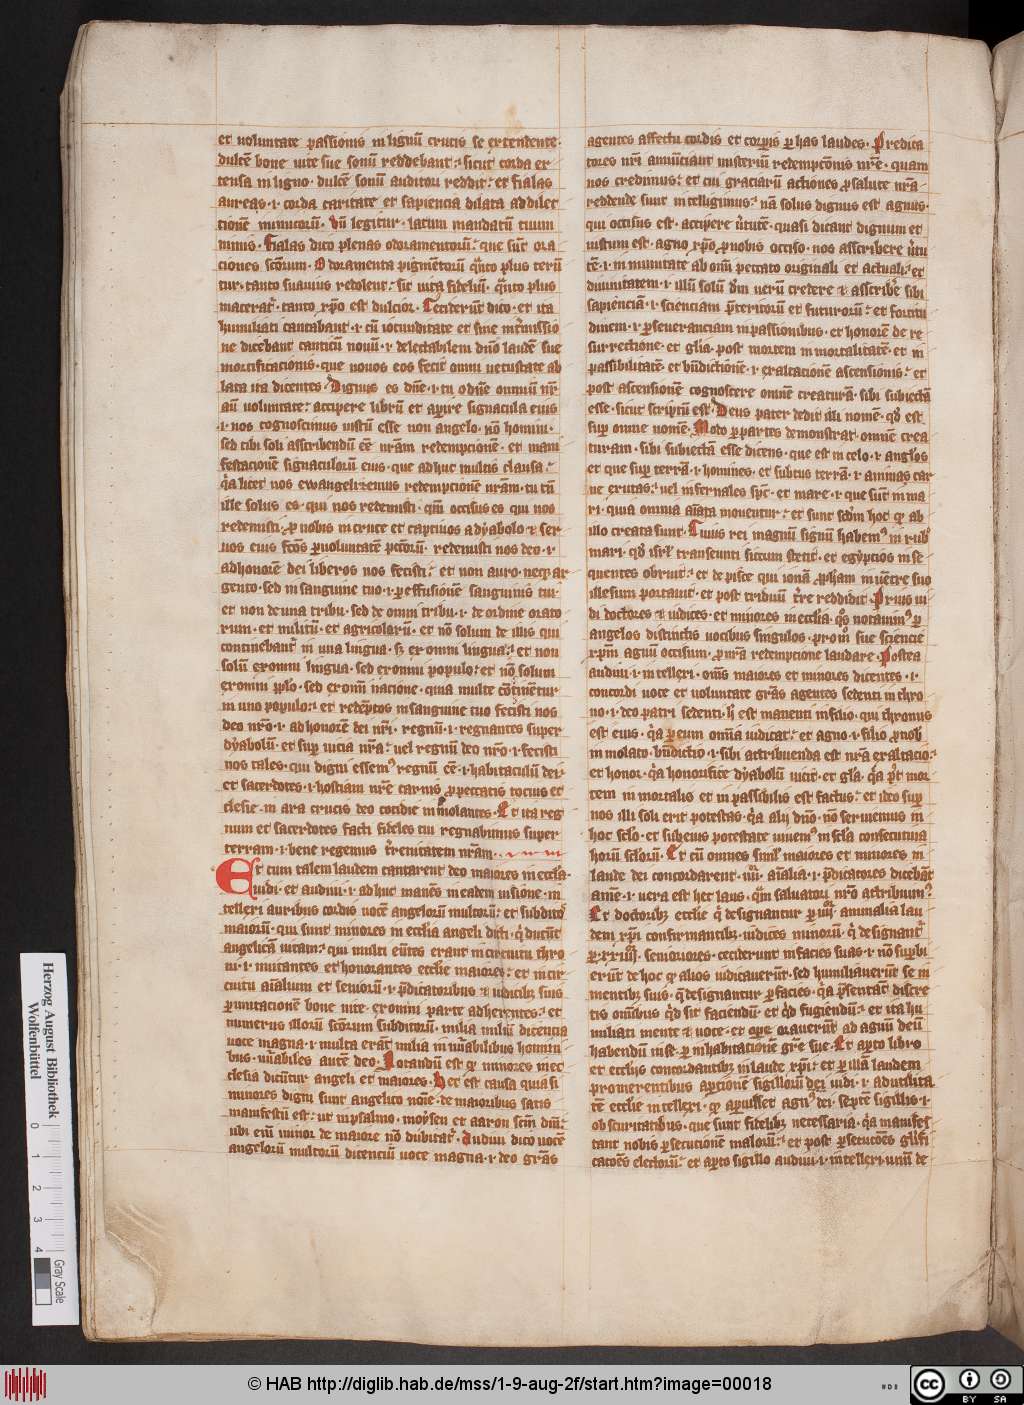 et voluntate passionis in lignū crucis se extendente·
dulcē bone vite sue sonū reddebant· sicut corda ex
tensa in ligno· dulcē sonū auditori reddit· et fialas
aureas· ⁊ corda caritate et sapiencia dilata ad dilec
tionē inimicorū· Vn̄ legitur· latum mandatū tuum
nimis· Fialas dico plenas odoramentorū· que sūt ora
ciones sc̄orum· Odoramenta pigmētorū qn̄to plus terū
tur· tanto suavius redolent· sic vita fidelium· qn̄to plus
macerat᷑· tanto xp̄o est dulcior· Ceciderūt dico· et ita
humiliati cantabant· ⁊ cū iocunditate et sine int᷑missio
ne dicebant canticū novū· ⁊ delectabilem dn̄o laudē sue
mortificacionis· que novos eos fecit omni vetustate ab
lata ita dicentes· Dignus es dn̄e· ⁊ tu o dn̄e omniū nr̄
aū voluntate· accipere librū et apire signacula eius
⁊ nos cognoscimus iustū esse non angelo· nō homini·
sed tibi soli asscribendū eē nr̄am redemptionē· et mani
festacionē signaculorū eius· que adhuc multis clausa·
q̄a licet nos ewangelizemus redemptionē nr̄am· tu tn̄
ille solus es· qui nos redemisti· qm̄ occisus es qui nos
redemisti· pro nobis in cruce et captivos a dyabolo ⁊ ser
vos eius fc̄os p voluntatē pctōrū· redemisti nos deo· ⁊
ad honorē dei liberos nos fecisti· et non auro neqꝫ ar
gento· sed in sanguine tuo· ⁊ p effusionē sanguinis tui·
et non de una tribu· sed de omni tribu· ⁊ de ordine orato
rum· et militū· et agricolarū· et nō solum de illis qui
continebant᷑ in una lingua· sꝫ ex omni lingua· et non
solū ex omni lingua· sed ex omni populo· et nō solum
ex omni pp̄lo· sed ex omī nacione· quia multe cōtinētur
in uno populo· et redēptos in sanguine tuo fecisti nos
deo nr̄o· ⁊ ad honorē dei nr̄i· regnū· ⁊ regnantes super
dyabolū· et sup vicia nr̄a· vel regnū deo nr̄o· ⁊ fecisti
nos tales· qui digni essemꝰ regnū eē· ⁊ habitaculū dei·
et sacerdotes· ⁊ hostiam nr̄e carnis p peccatis tocius ec
clesie· in ara crucis deo cotidie immolantes· Et ita reg
num et sacerdotes facti fideles tui regnabimus super
terram· ⁊ bene regemus t᷑renitatem nr̄am·
Et cum talem laudem cantarent deo maiores in eccl̄a·
vidi· et audivi· ⁊ adhuc manēs in eadem visione· in
tellexi auribus cordis vocē angelorū multorū· et subditoꝝ
maiorū· qui sunt minores in ecclīa angeli dicti· q̄ ducūt
angelicā vitam· qui multi eūtes erant in circuitu thro
ni· ⁊ imitantes et honorantes ecclīe maiores· et in cir
cuitu aīalium et seniorū· ⁊ p̄dicatoribus ⁊ iudicibꝫ suis
p imitacionem bone vite· ex omni parte adherentes· et
numerus illorū sc̄orum subditorū· milia miliū dicencia
voce magna· ⁊ multa erāt milia in īn̄abilibus homini
bus· in̄abiles autē deo· Notandū est qꝫ minores in ec
clesia dicūtur angeli et maiores· Hec est causa quasi
minores digni sunt angelico noīe· de maioribus satis
manifestū est· ut in psalmo· moysen et aaron sc̄m dn̄i·
ubi eni᷑ minor de maiore nō dubitat᷑· Audivi dico vocē
angelorū multorū dicenciū voce magna· ⁊ deo grās
agentes affectu cordis et corpis p has laudes· Predica
tores nr̄i annūciant misteriū redempcōnis nr̄e· quam
nos credimus· et cui graciarū actiones p salute nr̄a
reddende sunt intelligimus· nā solus dignus est agnus·
qui occisus est· accipere v̄tutē· quasi dicant dignum et
iustum est· agno xp̄o p nobis occiso· nos asscribere v̄tu
tē· ⁊ inmunitatē ab omī peccato originali et actuali· et
divinitatem· ⁊ illū solū dm̄ verū credere ⁊ asscribe sibi
sapienciā· ⁊ scienciam p̄teritorū et futurorū· et fortitu
dinem· ⁊ p severanciam in passionibus· et honorē de re
surrectione· et gl̄ia post mortem inmortalitatē· et in
passibilitatē et bn̄dictionē· ⁊ exaltacionē ascensionis· et
post ascensionē cognoscere omnē creaturā· sibi subiectā
esse· sicut scriptū est· Deus pater dedit illi nomē· qd est
sup omne nomē· Modo p partes demonstrat omnē crea
turam· sibi subiectā esse dicens· que est in celo· ⁊ anglos
et que sup terrā· ⁊ homines· et subtus terrā· ⁊ animas car
ne exutas· vel infernales sp̄c· et mare· ⁊ que sūt in ma
ri· quia omnia aīata moventur· et sunt scdm hoc qꝫ ab
illo creata sunt· Cuius rei magnū signū habemꝰ in rubꝰ
mari· qd isrl̄ transeunti siccum stetit· et egyptios in se
quentes obruit· et de pisce qui ionā pp̄ham in ventre suo
illesum portavit· et post triduū t᷑re reddidit· Prius vi
di doctores ⁊ iudices· et minores in ecclīa· qꝰs notavimꝰ p
angelos distinctis vocibus singulos· p mō sue sciencie
xp̄m agnū occisum· p nr̄a redemptione laudare· Postea
audivi· ⁊ intellexi· oms maiores et minores dicentes· ⁊
concordi voce et voluntate grās agentes sedenti in thro
no· ⁊ deo patri sedenti· h̄ est manenti in filio· qui thronus
est eius· q̄a p eum omīa iudicat· et agno· ⁊ filio pro nob
immolato· bn̄dictio· ⁊ sibi attribuenda est nr̄a exaltacio·
et honor· q̄a honorifice dyabolū vicit· et gl̄a· q̄a p mor
tem inmortalis et inpassibilis est factus· et ideo sup
nos illi soli erit potestas· q̄a alij dn̄o nō servemus in
hoc sc̄lo· et sub eius potestate vivemꝰ in sc̄la consecutiva
horū sc̄lorū· Et cū omnes siml̄ maiores et minores in
laude dei concordarent· iiii aīalia· ⁊ p̄dicatores dicebāt
amē· ⁊ vera est hec laus· qm̄ salvatori nr̄o attribuimꝰ·
Et doctoribꝫ ecclīe q̄ designantur p iiii animalia lau
dem xp̄i confirmantibꝫ· iudices minorū· q̄ designant᷑
p xxiiii seniores· ceciderunt in facies suas· ⁊ nō supbi
erūt de hoc qꝫ alios iudicaverūt· sed humiliaverūt se in
mentibꝫ suis· q̄ designantur p facies· q̄a p̄sentāt discre
tis omībus qd sit faciendū· et qd fugiendū· et ita hu
miliati mente ⁊ voce· et ope oraverūt ad agnū deū
habendū in se· p inhabitacionē gr̄e sue· Et apto libro
et ecclīijs concordantibꝫ in laude xp̄i· et p illā laudem
promerentibus apcionē sigillorū dei vidi· ⁊ ad utilita
tē ecclīe intellexi· qꝫ apuisset agnꝰ dei· septē sigillis· ⁊
obscuritatibus· que sunt fidelibꝫ necessaria· q̄a manifes
tant nobis p secucionē malorū· et post p secucōes gl̄ifi
cacōes electorū· et apto sigillo audivi· ⁊ intellexi· unū de
Herzog August Bibliothek
Wolfenbüttel
0 1 2 3 4
Gray Scale
© HAB http://diglib.hab.de/mss/1-9-aug-2f/start.htm?image=00018
cc BY SA